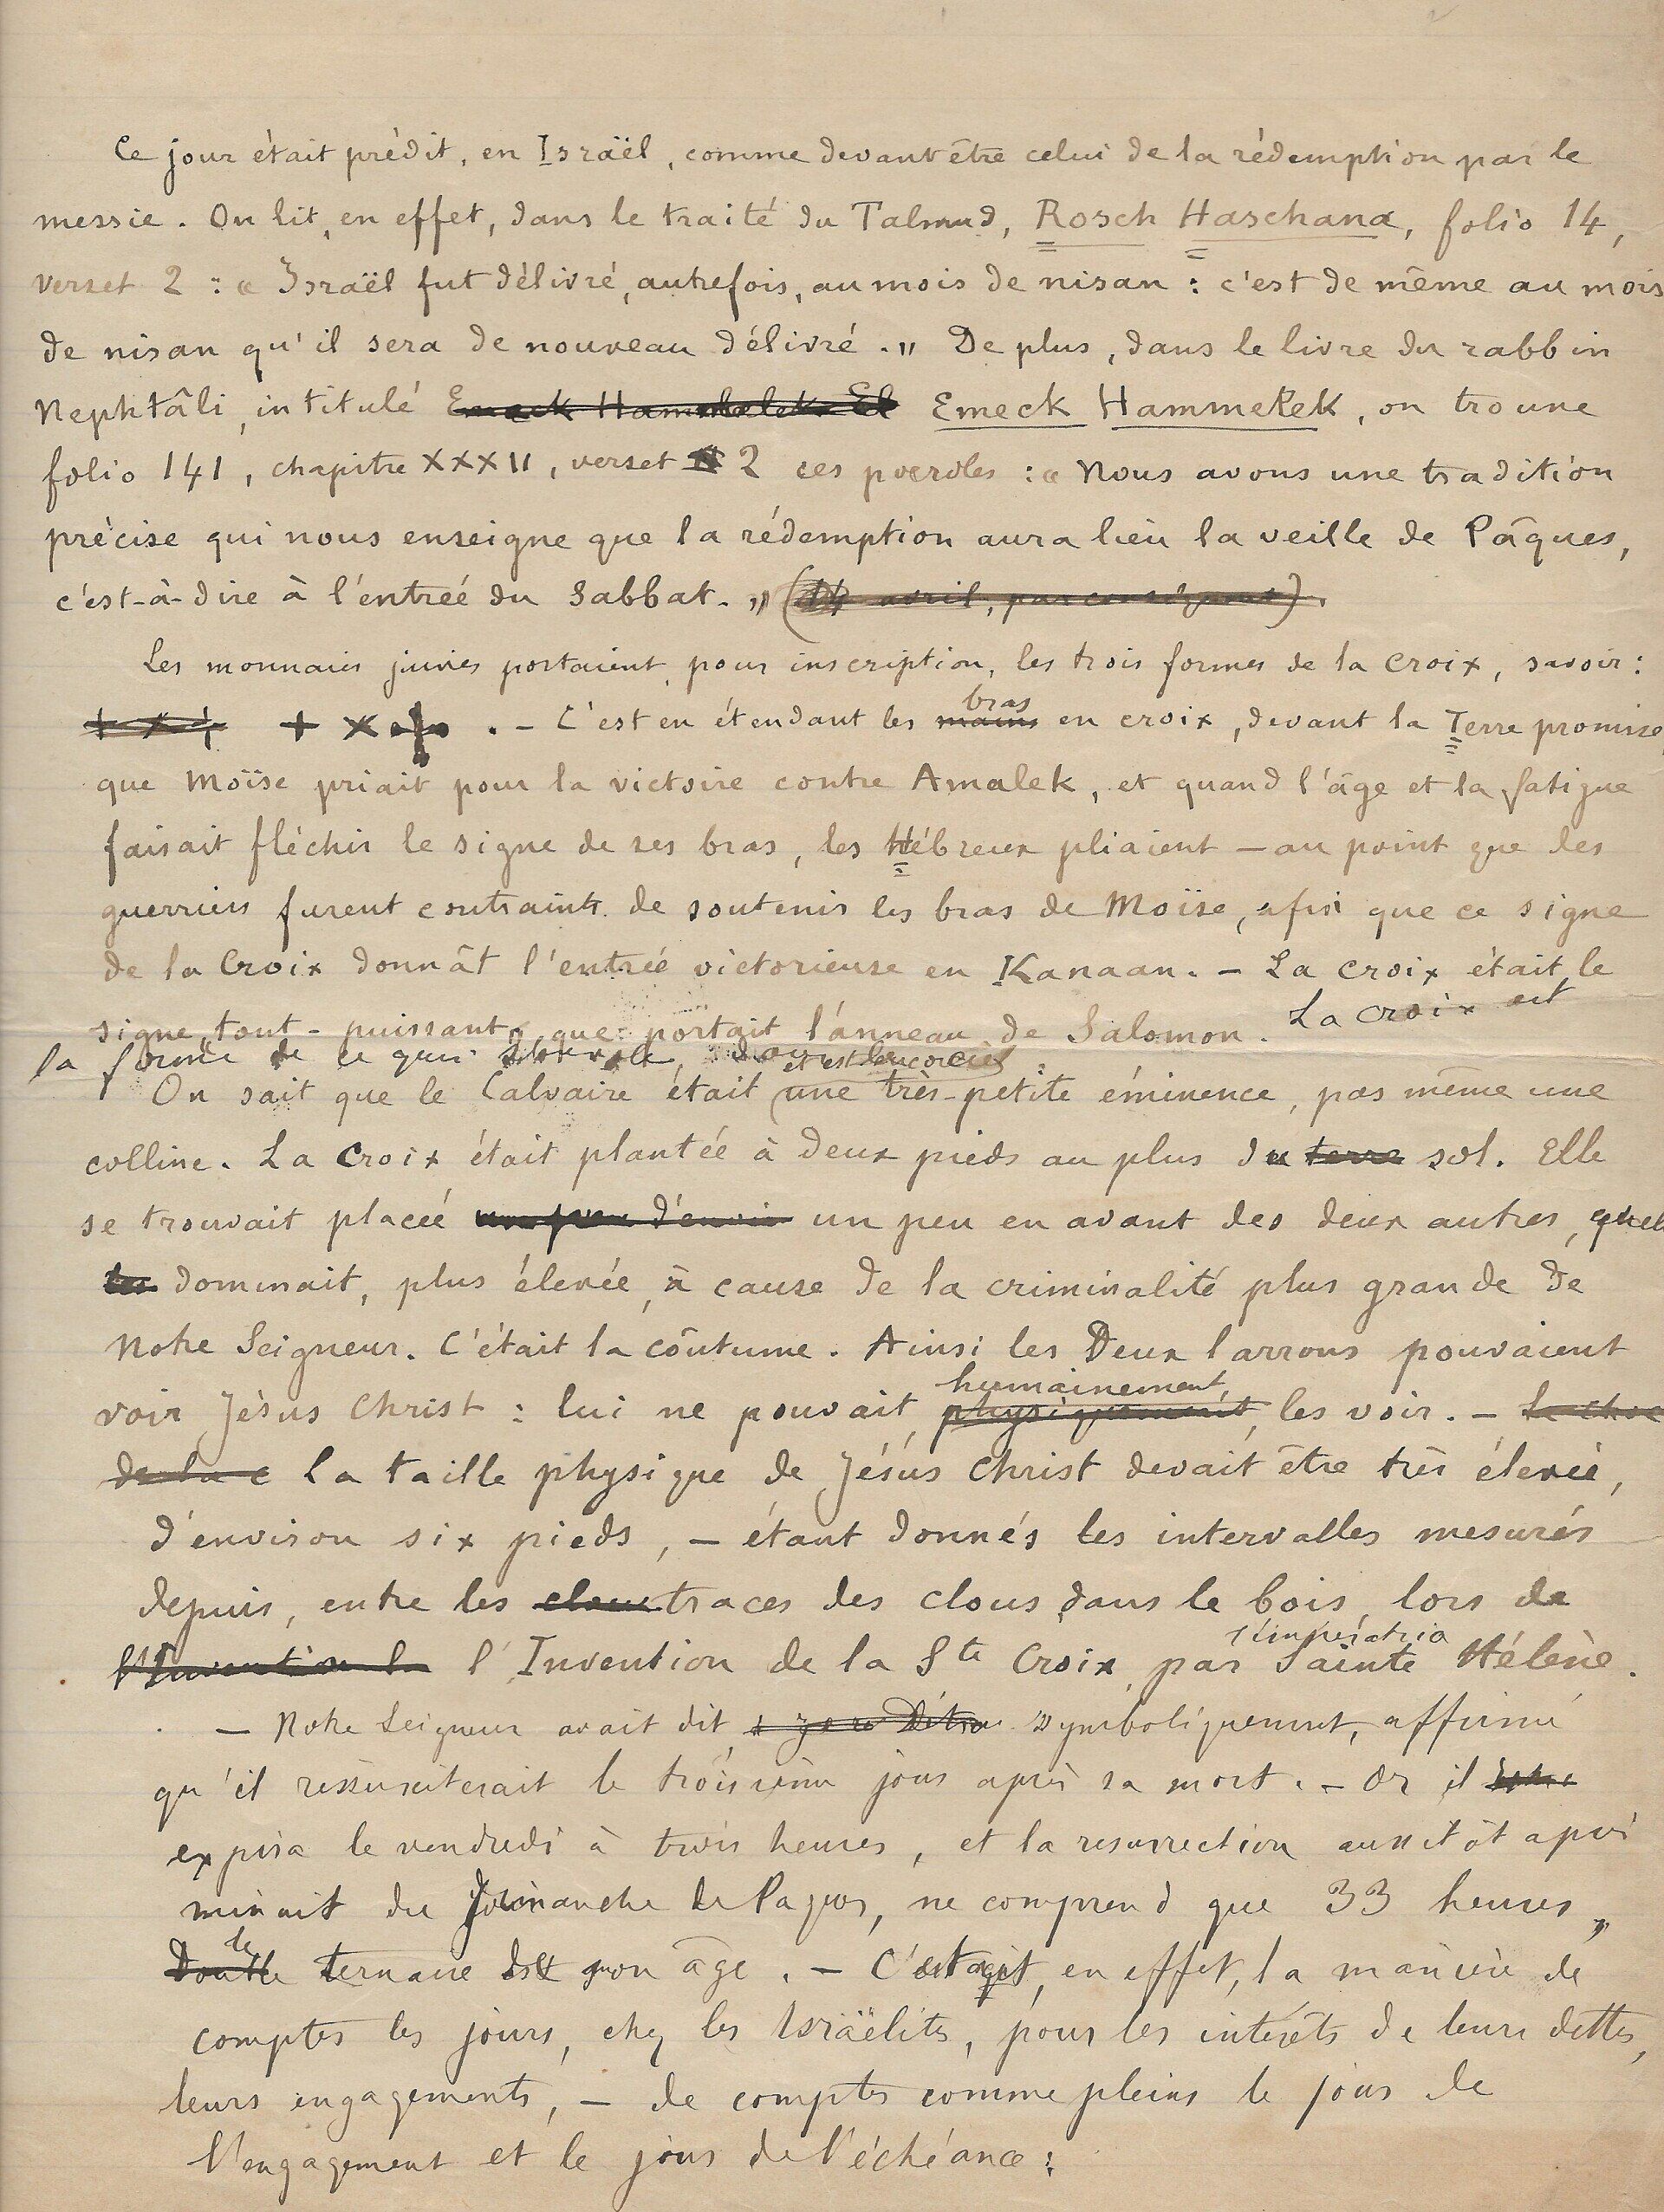 Ce jour était prédit, en Israël, comme devant être celui de la rédemption par le
messie. On lit, en effet, dans le traité du Talmud, Rosch Haschana, folio 14,
verset 2 : « Israël fut délivré, autrefois, au mois de nisan : c'est de même au mois
de nisan qu'il sera de nouveau délivré. » De plus, dans le livre du rabbin
Nephtâli, intitulé Emeck Hammelek, on trouve
folio 141, chapitre XXXII, verset 2 ces paroles : « Nous avons une tradition
précise qui nous enseigne que la rédemption aura lieu la veille de Pâques,
c'est-à-dire à l'entrée du Sabbat. » (14 avril, par conséquent).
Les monnaies juives portaient, pour inscription, les trois formes de la croix, savoir :
+ x + + x + . — C'est en étendant les mains bras en croix, devant la Terre promise,
que Moïse priait pour la victoire contre Amalek, et quand l'âge et la fatigue
faisait fléchir le signe de ses bras, les Hébreux pliaient — au point que les
guerriers furent contraints de soutenir les bras de Moïse, afin que ce signe
de la Croix donnât l'entrée victorieuse en Kanaan. — La croix était le
signe "tout-puissant", que portait l'anneau de Salomon. La croix est
la forme de ce qui
On sait que le Calvaire était une très-petite éminence, pas même une
colline. La Croix était plantée à deux pieds au plus du terre sol. Elle
se trouvait placée un peu d'envi un peu en avant des deux autres,
les dominait, plus élevée, à cause de la criminalité plus grande de
Notre Seigneur. C'était la coûtume. Ainsi les Deux larrons pouvaient
voir Jésus Christ : lui ne pouvait, physiquement humainement, les voir. —
de la c la taille physique de Jésus Christ devait être très élevée,
d'environ six pieds, — étant donnés les intervalles mesurés
depuis, entre les clous traces des clous dans le bois, lors de
l'Invention la l'Invention de la Ste Croix, par l'impératrice Sainte Hélène.
— Notre Seigneur avait dit, symboliquement, affirmé
qu'il ressusciterait le troisième jour après sa mort. — Or il
expira le vendredi à trois heures, et la resurrection aussitôt après
minuit du Dimanche de Paques, ne comprend que 33 heures,
Double le ternaire de son âge. — C'était, en effet, la manière de
compter les jours, chez les Israëlites, pour les intérêts de leurs dettes,
leurs engagements, — de compter comme pleins le jour de
l'engagement et le jour de l'échéance :